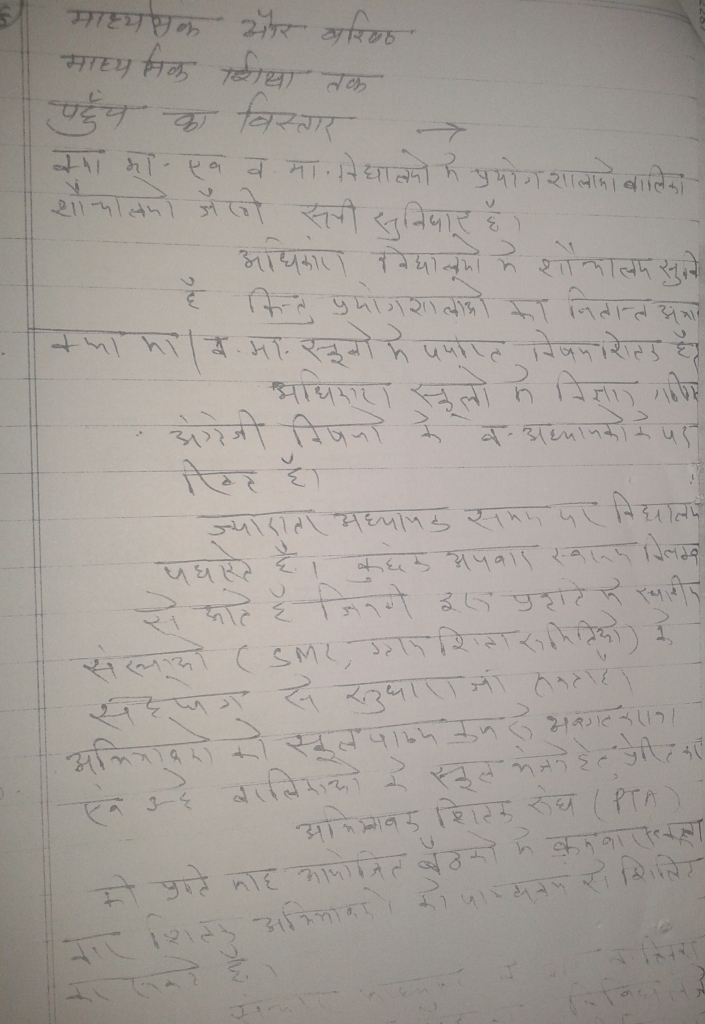 माध्यमिक और वरिष्ठ
माध्यमिक शिक्षा तक
पहुँच का विस्तार →
क्या मा. एवं व. मा. विद्यालयों में प्रयोगशालाओं बालिका
शौचालयों जैसी सभी सुविधाएं हैं।
अधिकांश विद्यालयों में शौचालय
है किन्तु प्रयोगशालाओं का नितान्त
क्या मा / व. मा. स्कूलों में पर्याप्त विषय शिक्षक हैं
अधिकांश स्कूलों में विज्ञान गणित
अंग्रेजी विषयों के व. अध्यापकों के पद
रिक्त हैं।
ज्यादातर अध्यापक समय पर विद्यालय
पधारते हैं। कुछेक अपवाद स्वरूप विलम्ब
से आते हैं जिनमें इस प्रवृत्ति में स्थानीय
संस्थाओं (SMC, ग्राम शिक्षा समितियों) के
सहयोग से सुधारा जा सकता है।
अभिभावकों को स्कूल पाठ्यक्रम से अवगत कराना
एवं उन्हें बालिकाओं के स्कूल भेजने हेतु प्रेरित
अभिभावक शिक्षक संघ (PTA)
की प्रति माह आयोजित बैठकों में
कर शिक्षक अभिभावकों को पाठ्यक्रम से
कर सकते हैं।